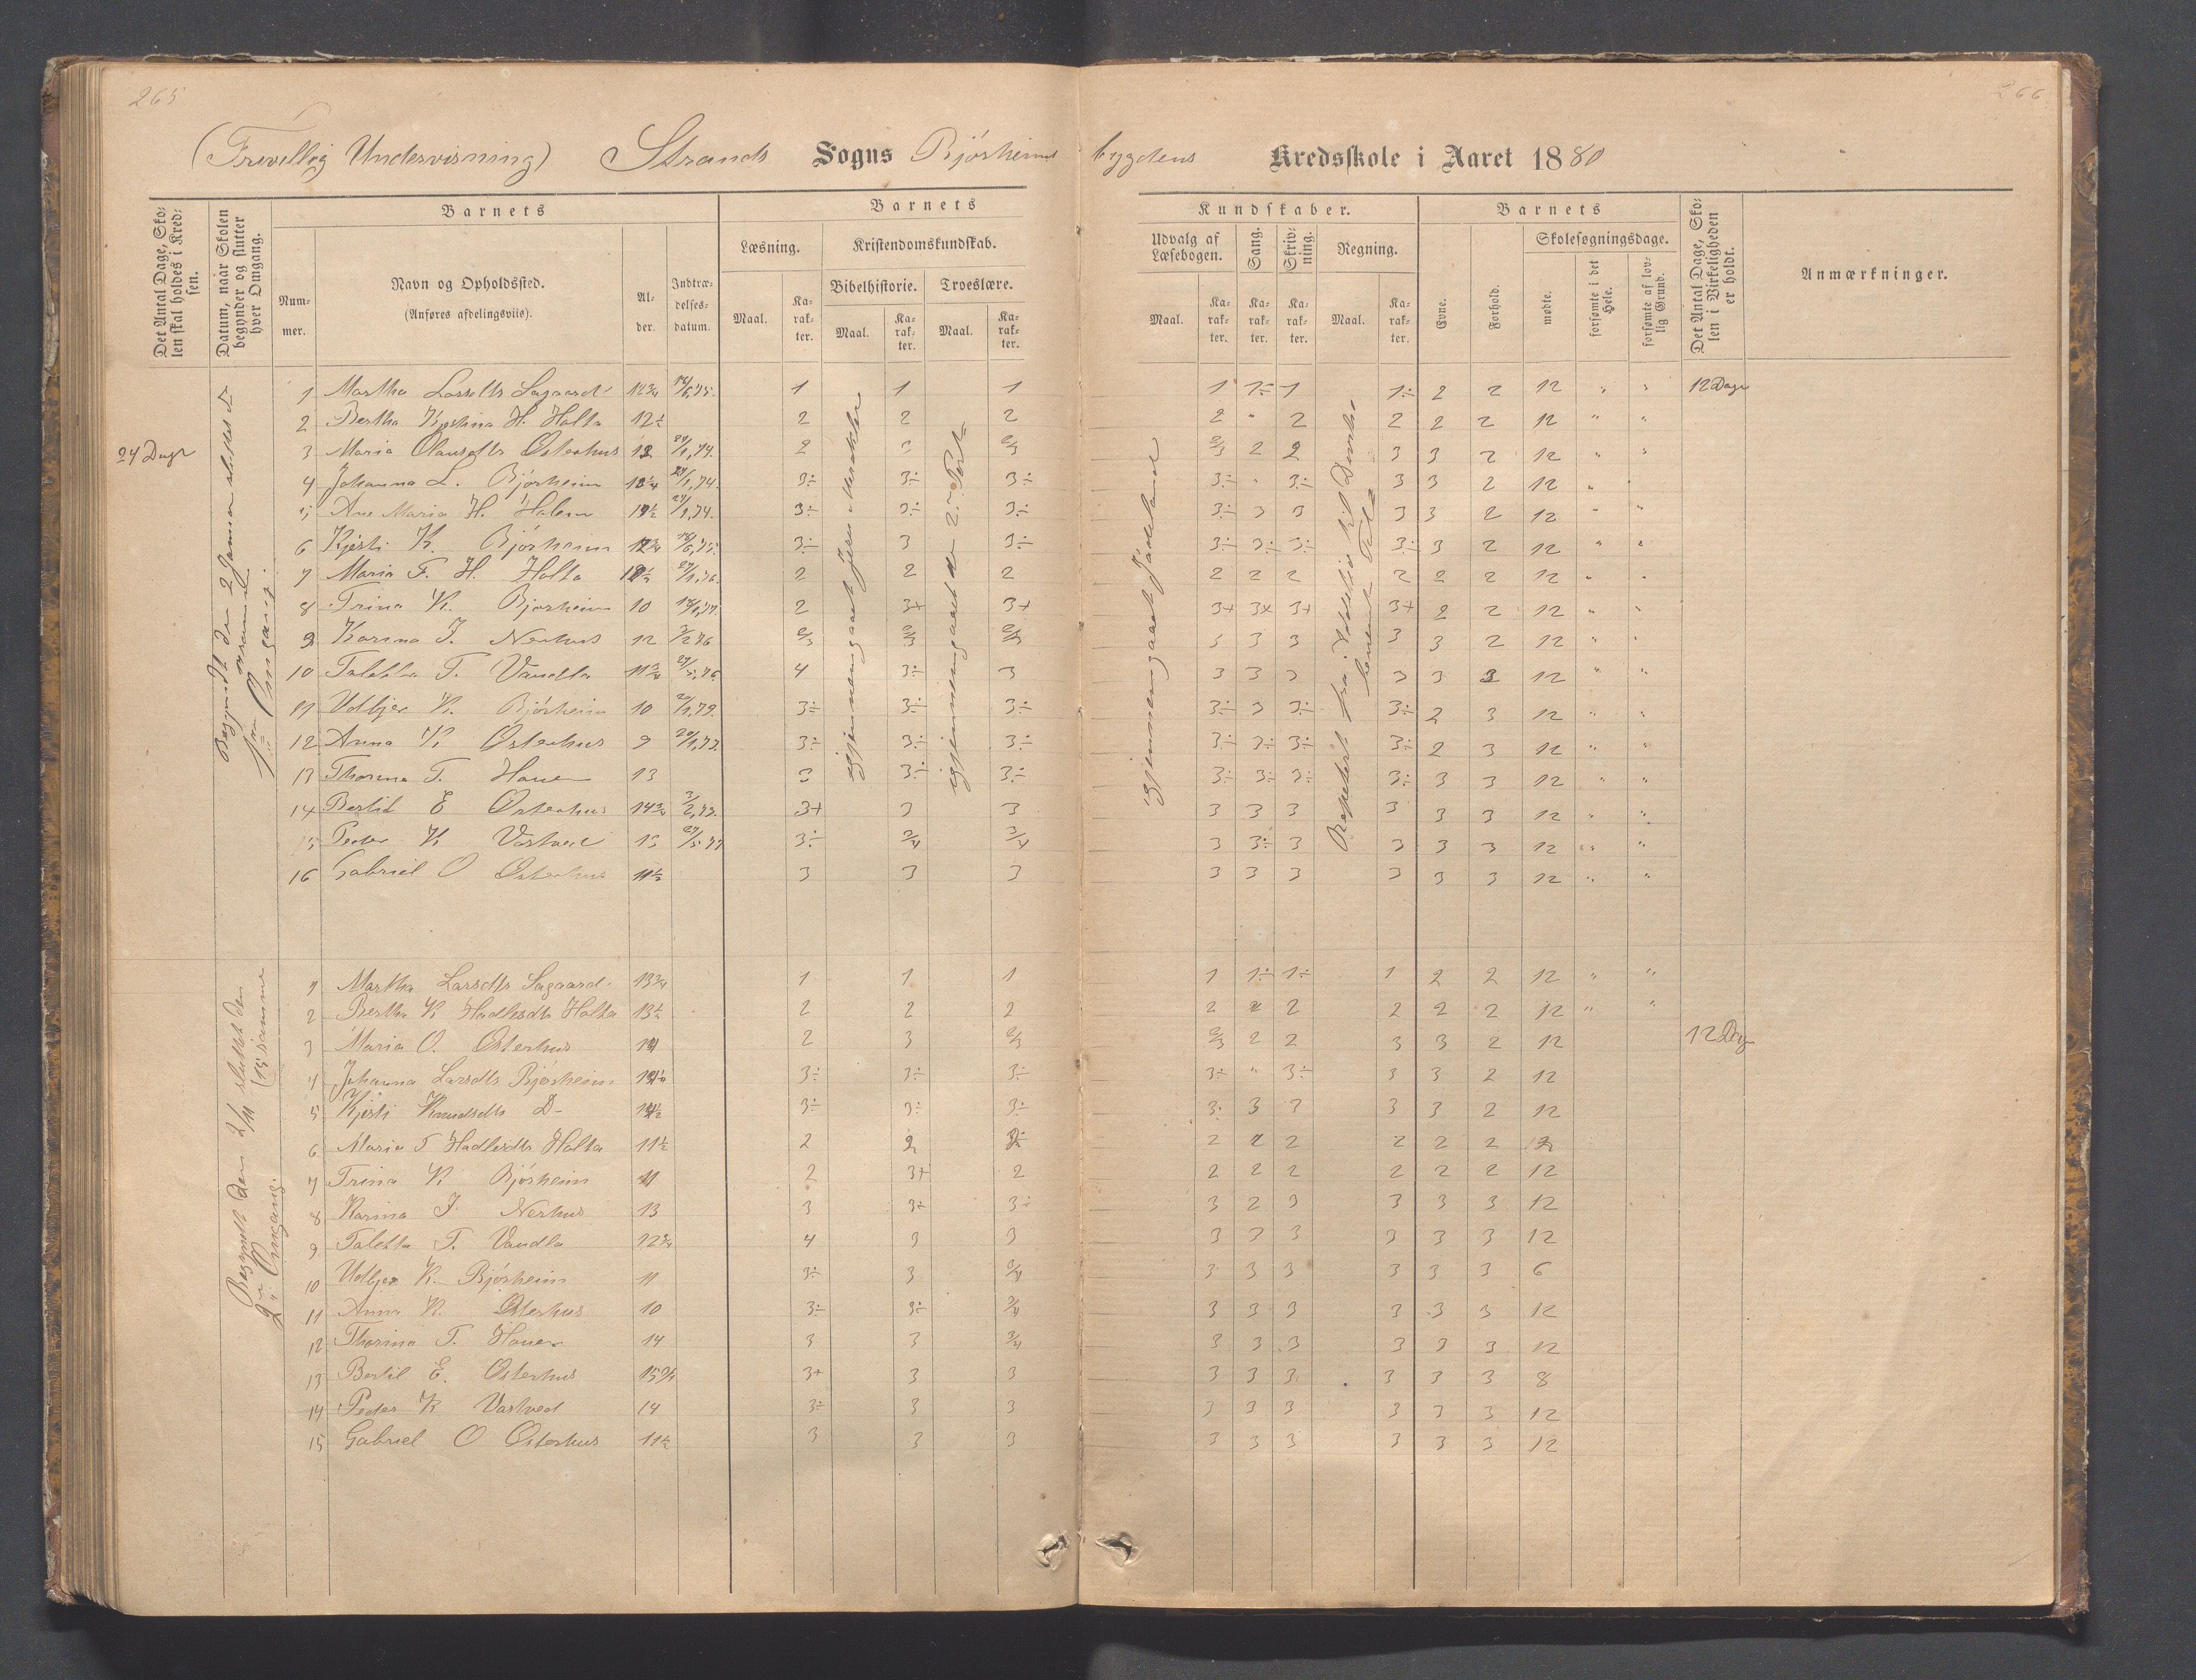 265
266
(Frivillig Undervisning) Strands Sogns Bjørheims bygdens Kredsskole i Aaret 1880
Det Antal Dage, Skolen skal holdes i Kredsen.
Datum, naar Skolen begynder og slutter hver Omgang.
Barnets
Nummer.
Navn og Opholdssted.
(Anføres afdelingsviis).
Alder.
Indtrædelsesdatum.
Barnets
Læsning.
Kristendomskundskab.
Bibelhistorie. Troeslære.
Maal. Karakter. Maal. Karakter. Maal. Karakter.
Kundskaber.
Udvalg af Læsebogen. Sang. Skrivning. Regning.
Maal. Karakter. Karakter. Karakter. Maal. Karakter.
Barnets
Evne. Forhold.
Skolesøgningsdage.
mødte. forsømte i det Hele. forsømte af lovlig Grund.
Det Antal Dage, Skolen i Virkeligheden er holdt.
Anmærkninger.
24 Dage
12 Dage
1 Martha Larsdtr Sagaard 1 1 1 1 1÷ 1 1÷ 2 2 12 " "
2 Bertha Kjestina H. Holta 12½ 2 2 2 2 " 2 2 2 2 12 " "
3 Maria Olausdtr Østerhus 2 2/3 2/3 2 2 3 3 2 12 " "
4 Johanna L. Bjørheim 3÷ 3÷ 3÷ 3÷ " 3÷ 3 3 2 12 "
5 Ane Maria H. 3÷ 3÷ 3÷ 3÷ 3 3 3 3 2 12 " "
6 Kjesti K. Bjørheim 3÷ 3 3÷ 3÷ 3÷ 3÷ 3÷ 3 2 12 " "
7 Maria T. H. Holta 2 2 2 2 2 2 2 2 2 12 " "
8 Trina K. Bjørheim 10 2 3+ 3+ 3+ 3+ 3+ 3+ 2 2 12 " "
9 Karina J. Nerhus 12 3/2 76 2/3 2/3 2/3 3 3 3 3 3 2 12 " "
10 Taletta T. Vandla 11¾ 4 3÷ 3 3 3 3 3 3 3 12 " "
11 Udbjer K. Bjørheim 10 3÷ 3÷ 3÷ 3÷ 3 3÷ 3÷ 2 3 12 " "
12 Anna K. Østerhus 9 3÷ 3÷ 3÷ 3÷ 3÷ 3÷ 3÷ 2 3 12 " "
13 Thorina T. 13 3 3÷ 3÷ 3÷ 3÷ 3÷ 3÷ 3 3 12 " "
14 Bertil E Østerhus 14¾ 3+ 3 3 3 3 3 3 3 3 12 " "
15 Peder K Vastved 13 3÷ 3/4 3/4 3 3÷ 3 3 3 3 12 " "
16 Gabriel O Østerhus 11½ 3 3 3 3 3 3 3 3 3 12 " "
1ste Omgang.
igjennemgaaet Jesu Mirakler
igjennemgaaet den 2. Part
igjennemgaaet Jædeland
12 Dage
1 Martha Larsdtr Sagaard 13¾ 1 1 1 1 1÷ 1÷ 1 2 2 12 " "
2 Bertha K Hadlesdtr Holta 13½ 2 2 2 2 2 2 2 2 2 12 " "
3 Maria O. Østerhus 14 2 3 2/3 2/3 2 2 3 3 2 12
4 Johanna Larsdtr Bjørheim 3÷ 3÷ 3÷ 3÷ " 3÷ 3 3 2 12
5 Kjesti Knudsdtr D- 3÷ 3÷ 3÷ 3÷ 3 3 3 3 2 12
6 Maria T Hadlesdtr Holta 11½ 2 2 2 2 2 2 2 2 2 12
7 Trina K Bjørheim 11 2 3+ 2 2 2 2 2 2 2 12
8 Karina J. Nerhus 13 3 3÷ 3÷ 3 2 3 3 3 3 12
9 Taletta T. Vandla 12¾ 4 3 3 3 3 3 3 3 3 12
10 Udbjer K. Bjørheim 11 3÷ 3 3/4 3 3 3 3 3 3 6
11 Anna K. Østerhus 10 3÷ 3÷ 3/4 3 3 3 3 3 3 12
12 Thorina T. 14 3 3 3/4 3 3 3 3 3 3 12
13 Bertil E. Østerhus 15¾ 3+ 3 3 3 3 3 3 3 3 8
14 Peder K Vastved 14 3÷ 3 3 3 3 3 3 3 3 12
15 Gabriel O Østerhus 11½ 3 3 3 3 3 3 3 3 3 12
2den Omgang.